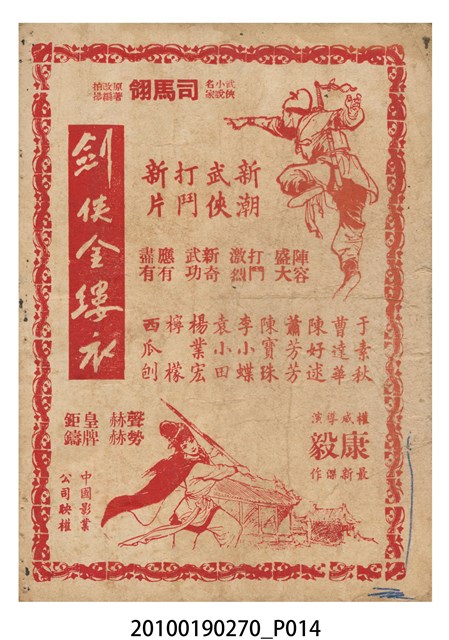 武俠小說名家
司馬翎
原著改編
劍俠金縷衣
新潮
武俠
打鬥
新片
陣容盛大
打鬥激烈
新奇武功
應有盡有
于素秋
曹達華
陳好逑
蕭芳芳
陳寶珠
李小蝶
袁小田
楊業宏
檸檬
西瓜刨
權威導演
康毅
最新傑作
聲勢赫赫
皇牌鉅鑄
中國影業
公司映權
20100190270_P014